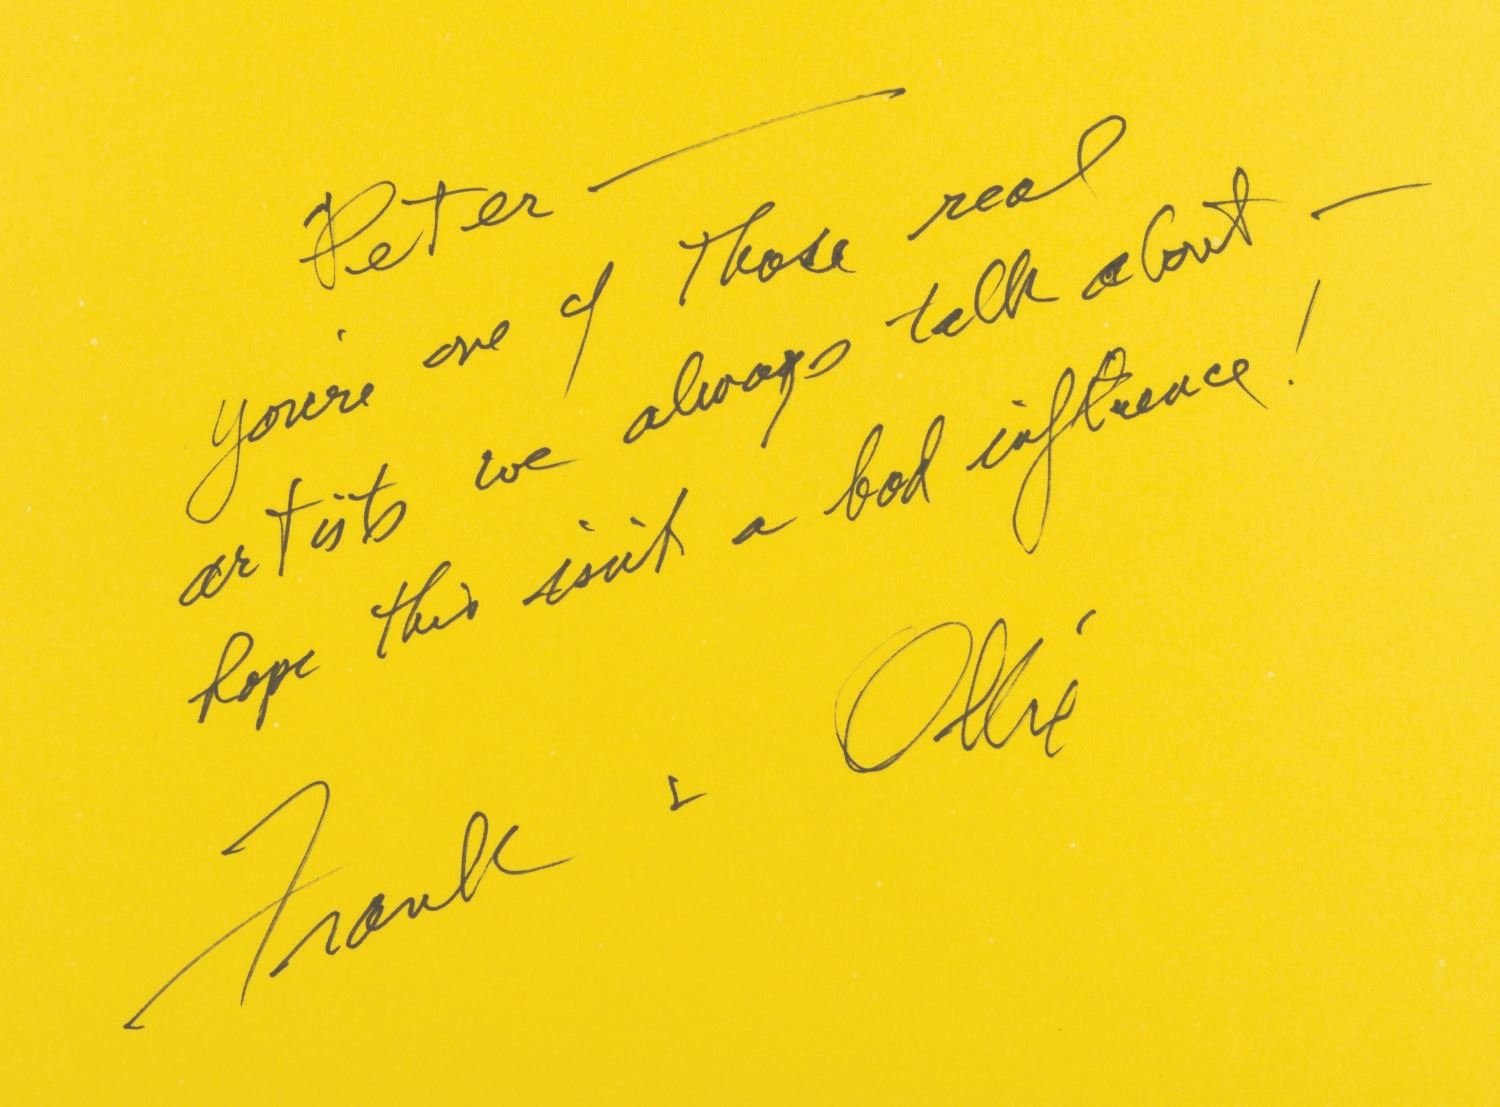 Peter —
you're one of those real
artists we always talk about —
hope this isn't a bad influence!
Frank & Ollie